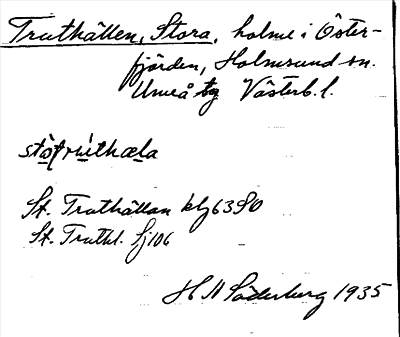 Truthällen, Stora, holme i Öster-
fjärden, Holmsund sn.
Umeå tg Västerb. l.
St. Truthällan klg 63 SO
St. Truthl. Sj 106
H A Söderberg 1935